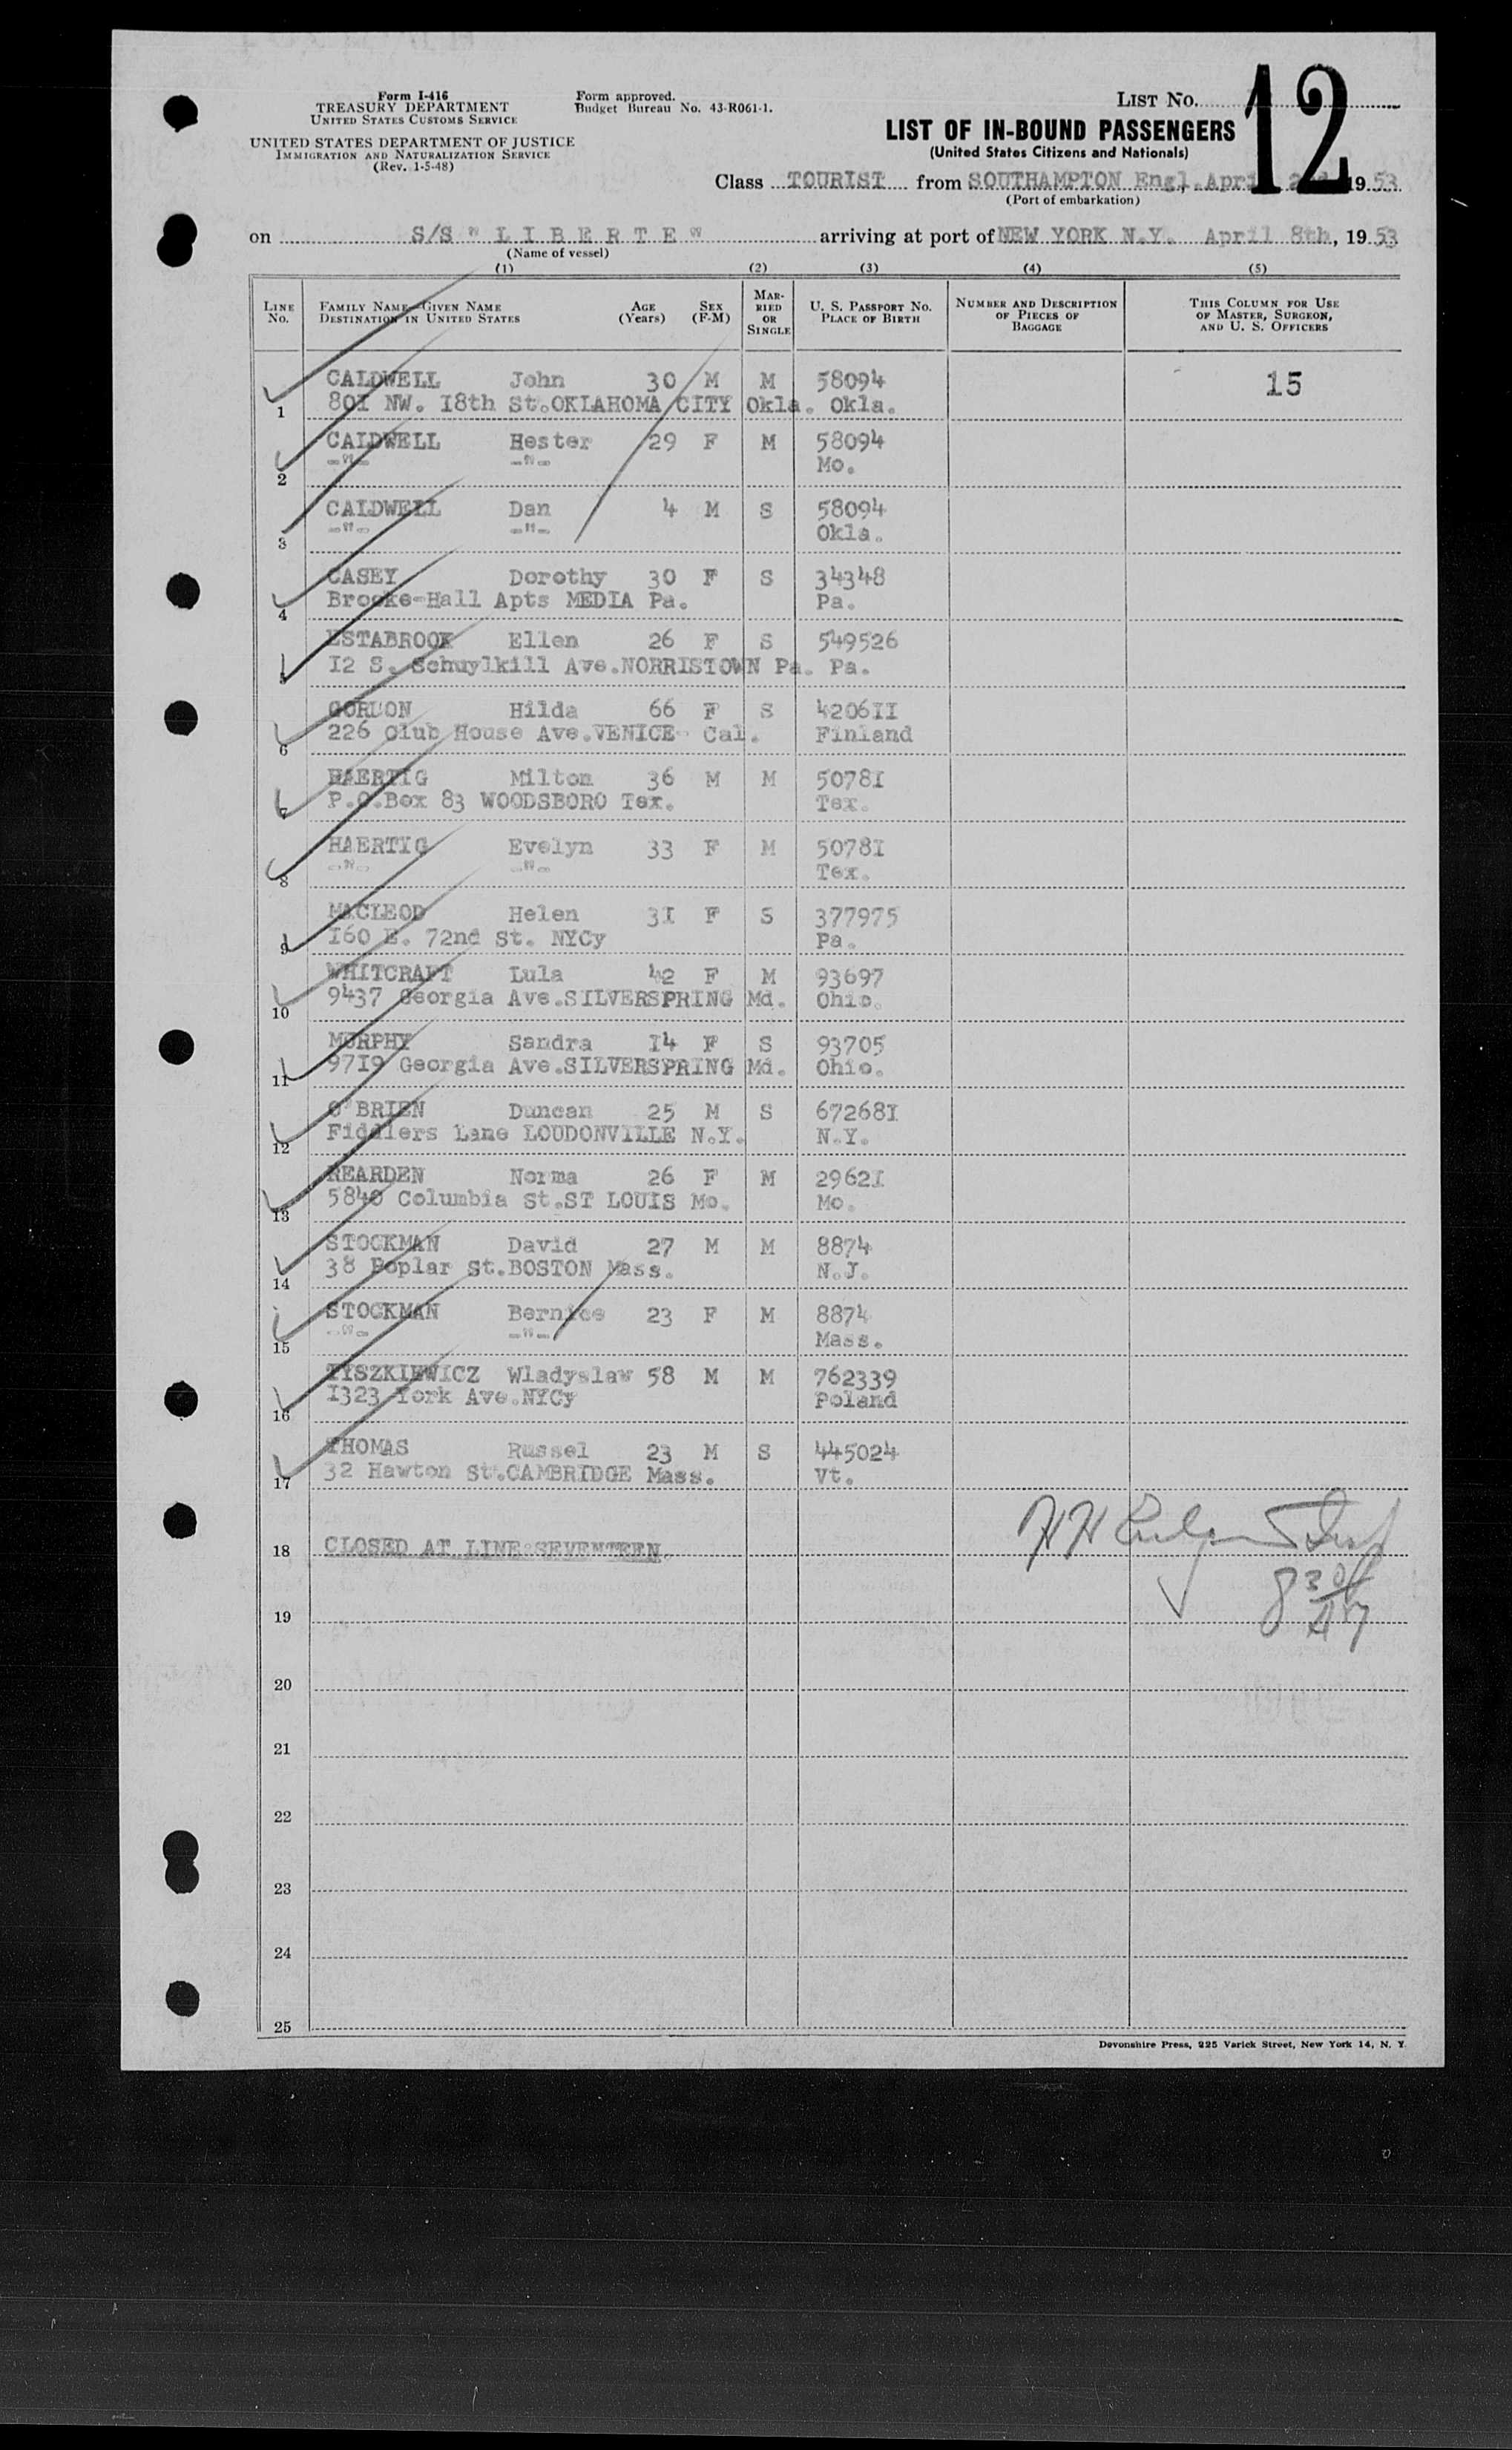 Form I-416
TREASURY DEPARTMENT
UNITED STATES CUSTOMS SERVICE
UNITED STATES DEPARTMENT OF JUSTICE
IMMIGRATION AND NATURALIZATION SERVICE
(Rev. 1-5-48)
Form approved.
Budget Bureau No. 43-R061-1.
LIST No. 12
LIST OF IN-BOUND PASSENGERS
(United States Citizens and Nationals)
Class TOURIST from SOUTHAMPTON Engl. April 2nd 1953
(Port of embarkation)
on S/S " L I B E R T E " arriving at port of NEW YORK N.Y. April 8th, 1953
(Name of vessel)
(1) (2) (3) (4) (5)
LINE No. FAMILY NAME—GIVEN NAME DESTINATION IN UNITED STATES AGE (Years) SEX (F-M) MARRIED OR SINGLE U. S. PASSPORT No. PLACE OF BIRTH NUMBER AND DESCRIPTION OF PIECES OF BAGGAGE THIS COLUMN FOR USE OF MASTER, SURGEON, AND U. S. OFFICERS
CALDWELL John 30 M M 58094 15
1 801 NW. I8th St.OKLAHOMA CITY Okla. Okla.
CALDWELL Hester 29 F M 58094
2 -"- -"- Mo.
CALDWELL Dan 4 M S 58094
3 -"- -"- Okla.
CASEY Dorothy 30 F S 34348
4 Brooke-Hall Apts MEDIA Pa. Pa.
ESTABROOK Ellen 26 F S 549526
5 I2 S. Schuylkill Ave.NORRISTOWN Pa. Pa.
GORDON Hilda 66 F S 4206II
6 226 Club House Ave.VENICE- Cal. Finland
HAERTIG Milton 36 M M 5078I
7 P.O.Box 83 WOODSBORO Tex. Tex.
HAERTIG Evelyn 33 F M 5078I
8 -"- -"- Tex.
MACLEOD Helen 3I F S 377975
9 I60 E. 72nd St. NYCy Pa.
WHITCRAFT Lula 42 F M 93697
10 9437 Georgia Ave.SILVERSPRING Md. Ohio.
MURPHY Sandra I4 F S 93705
11 97I9 Georgia Ave.SILVERSPRING Md. Ohio.
O'BRIEN Duncan 25 M S 67268I
12 Fiddlers Lane LOUDONVILLE N.Y. N.Y.
REARDEN Norma 26 F M 2962I
13 5840 Columbia St.ST LOUIS Mo. Mo.
STOCKMAN David 27 M M 8874
14 38 Poplar St.BOSTON Mass. N.J.
STOCKMAN Bernice 23 F M 8874
15 -"- -"- Mass.
TYSZKIEWICZ Wladyslaw 58 M M 762339
16 I323 York Ave.NYCy Poland
THOMAS Russel 23 M S 445024
17 32 Hawton St.CAMBRIDGE Mass. Vt.
18 CLOSED AT LINE SEVENTEEN
19
20
21
22
23
24
25
Devonshire Press, 225 Varick Street, New York 14, N. Y.